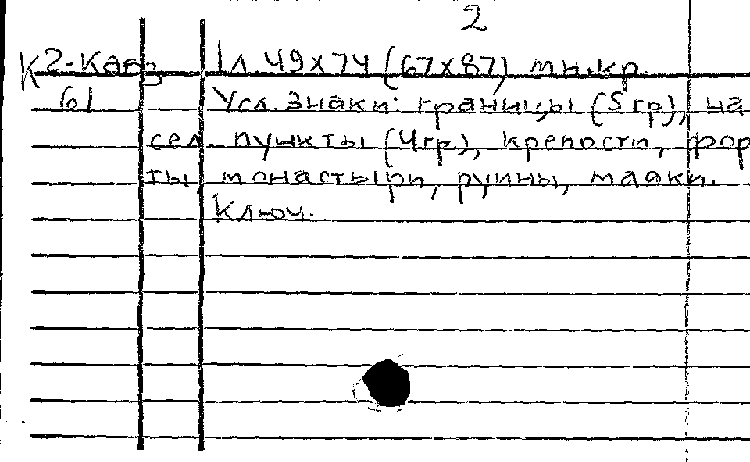 2
К2-Кавз 1л. 49х74 (67х87) мн.кр.
61 Усл. знаки: границы (5 гр), на
сел. пункты (4гр), крепости, фор
ты монастыри, руины, маяки.
Ключ.